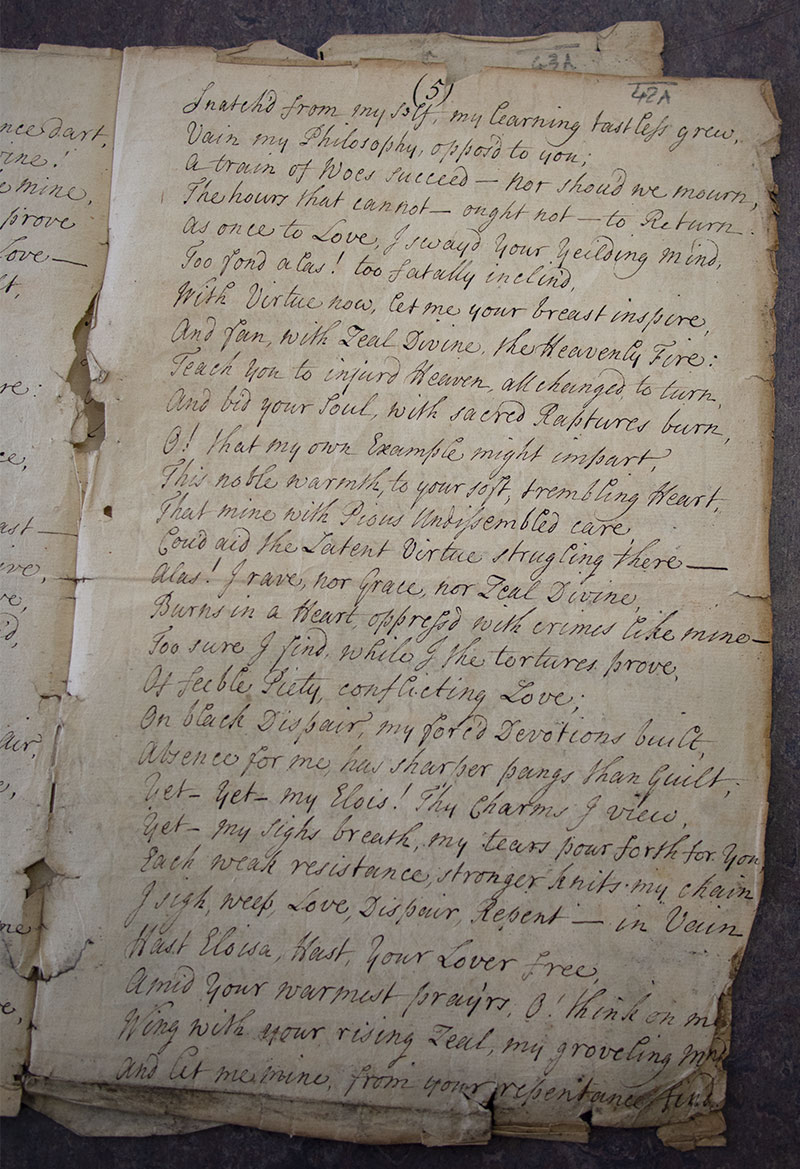 43A
42A
(5)
Snatch'd from my self, my learning tastless grew,
Vain my Philosophy, oppos'd to you;
A train of Woes succeed — nor shoud we mourn,
The hours that cannot — ought not — to Return.
As once to Love, I sway'd Your Yeilding mind,
Too fond alas! too fatally inclin'd,
With Virtue now, let me your breast inspire,
And fan, with Zeal Divine, the Heavenly Fire:
Teach You to injurd Heaven, all changed, to turn,
And bid your Soul, with sacred Raptures burn,
O! that my own Example might impart,
This noble warmth, to your soft, trembling Heart,
That mine with Pious Undissembled care,
Coud aid the Latent Virtue strugling there —
Alas! I rave, nor Grace, nor Zeal Divine,
Burns in a Heart, oppress'd with crimes like mine —
Too sure I find, while I the tortures prove,
Of feeble Piety, conflicting Love;
On black Dispair, my forc'd Devotions built,
Absence for me, has sharper pangs than Guilt;
Yet — Yet — my Elois! Thy Charms I view,
Yet — my sighs breath, my tears pour forth for You,
Each weak resistance, stronger knits my chain
I sigh, weep, Love, Dispair, Repent — in Vain
Hast Eloisa, Hast, Your Lover free,
Amid Your warmest pray'rs, O! think on me
Wing with your rising Zeal, my groveling mind
And let me mine, from your repentance, find
nce dart,
vine!
e mine,
prove
Love —
lt,
re:
ce,
ast —
ive,
ve,
i'd,
air,
e,
me
e,